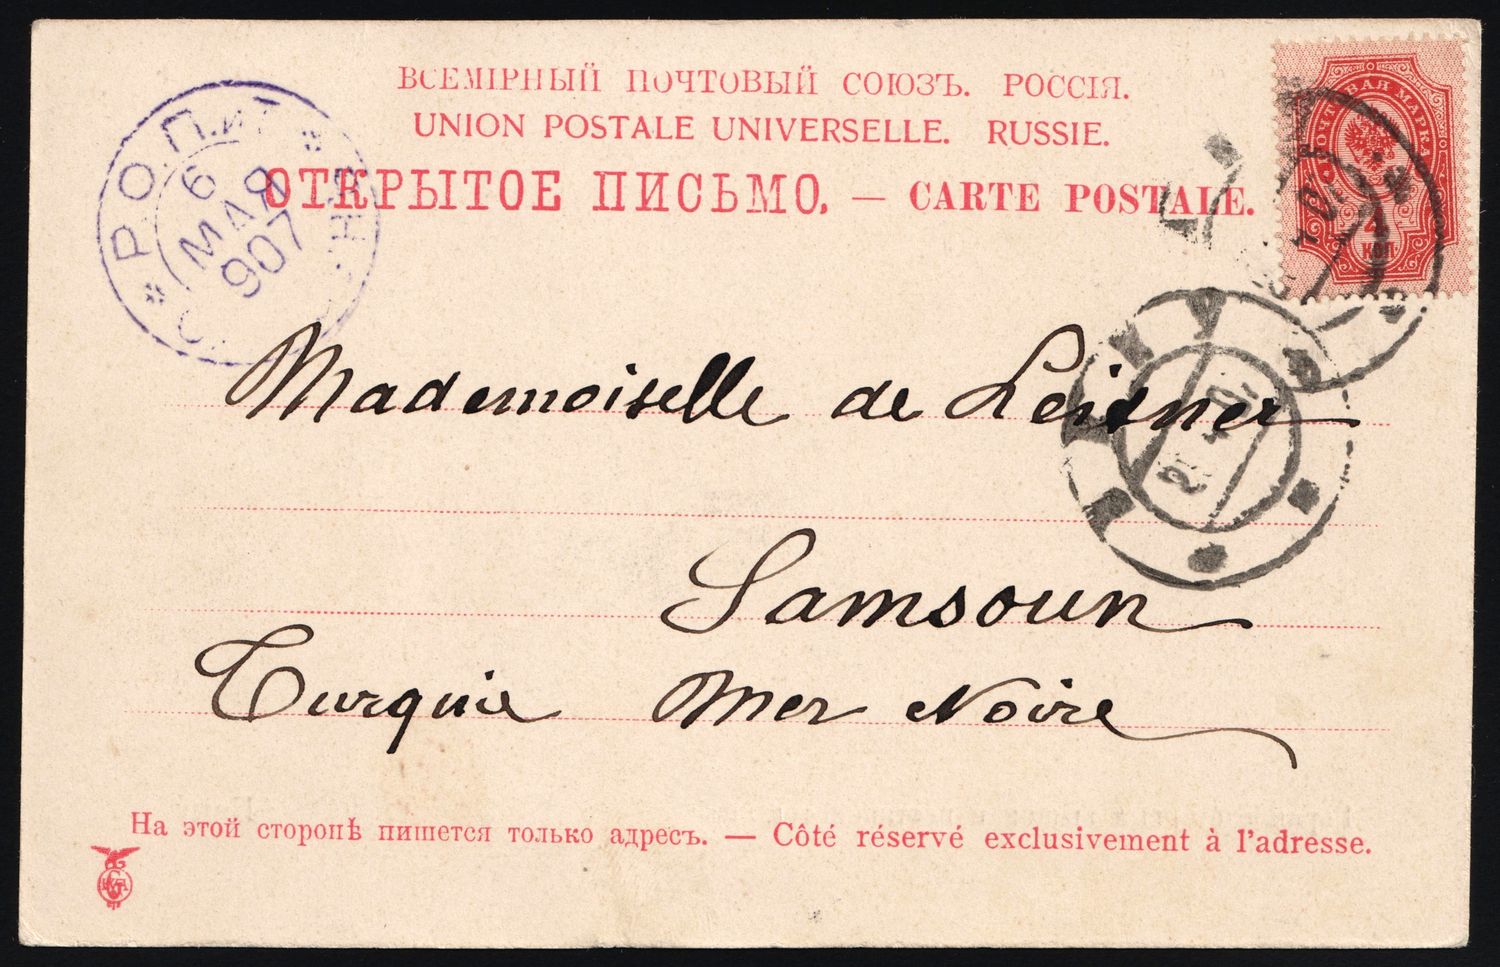 ВСЕМІРНЫЙ ПОЧТОВЫЙ СОЮЗЪ. РОССІЯ.
UNION POSTALE UNIVERSELLE. RUSSIE.
ОТКРЫТОЕ ПИСЬМО. — CARTE POSTALE.
Р.О.П.и Т.
6
МАР
907
ПОЧТОВАЯ МАРКА
4
КОП
Mademoiselle de Leitner
Samsoun
Turquie Mer Noire
На этой сторонѣ пишется только адресъ. — Côté réservé exclusivement à l'adresse.